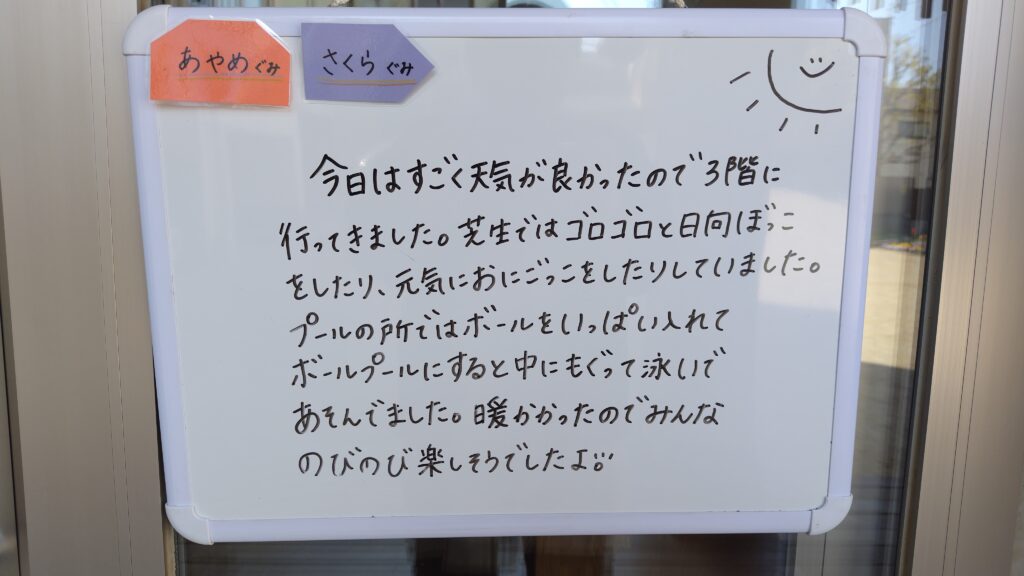 あやめぐみ
さくらぐみ
今日はすごく天気が良かったので3階に
行ってきました。芝生ではゴロゴロと日向ぼっこ
をしたり、元気におにごっこをしたりしていました。
プールの所ではボールをいっぱい入れて
ボールプールにすると中にもぐって泳いで
あそんでました。暖かかったのでみんな
のびのび楽しそうでしたよ。